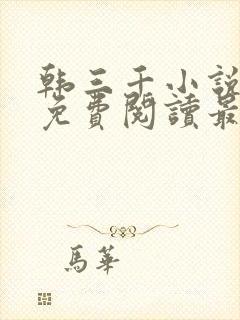 韩三千小說
免費閱讀最
馬華